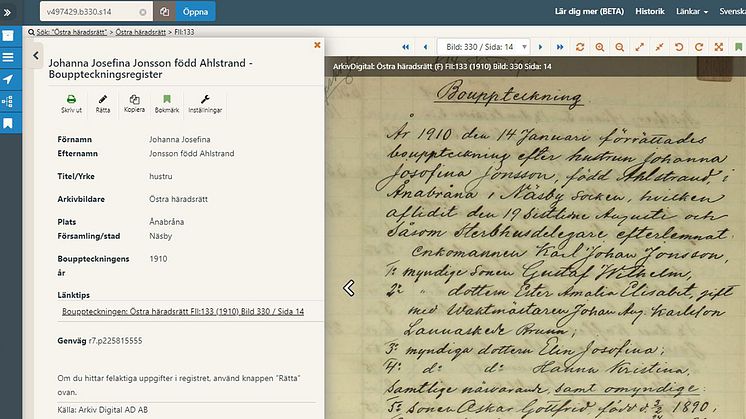 v497429.b330.s14
Öppna
Lär dig mer (BETA)
Historik
Länkar
Svenska
Sök: "Östra häradsrätt" > Östra häradsrätt > FII:133
Johanna Josefina Jonsson född Ahlstrand -
Bouppteckningsregister
Skriv ut
Rätta
Kopiera
Bokmärk
Inställningar
Förnamn Johanna Josefina
Efternamn Jonsson född Ahlstrand
Titel/Yrke hustru
Arkivbildare Östra häradsrätt
Plats Ånabråna
Församling/stad Näsby
Bouppteckningens 1910
år
Länktips
Bouppteckningen: Östra häradsrätt FII:133 (1910) Bild 330 / Sida 14
Genväg r7.p225815555
Om du hittar felaktiga uppgifter i registret, använd knappen "Rätta"
ovan.
Källa: Arkiv Digital AD AB
Bild: 330 / Sida: 14
ArkivDigital: Östra häradsrätt (F) FII:133 (1910) Bild: 330 Sida: 14
Bouppteckning.
År 1910 den 14 Januari förrättades
bouppteckning efter hustrun Johanna
Josefina Jonsson, född Ahlstrand, i
Anabråna i Näsby socken, hvilken
aflidit den 19 sistline Augusti och
såsom sterbhusdelegare efterlemnat
enkomannen Karl Johan Jonsson,
1: myndige Sonen Gustaf Wilhelm,
2: " dottern Ester Amalia Elisabet, gift
med Waktmästaren Johan Aug. Karlsson
Lannaskede Brunn;
3: myndiga dottern Elin Josefina;
4: d: d: Hanna Kristina,
Samtlige närvarande, samt omyndige:
5: Sonen Oskar Gottfrid född d. 1890;